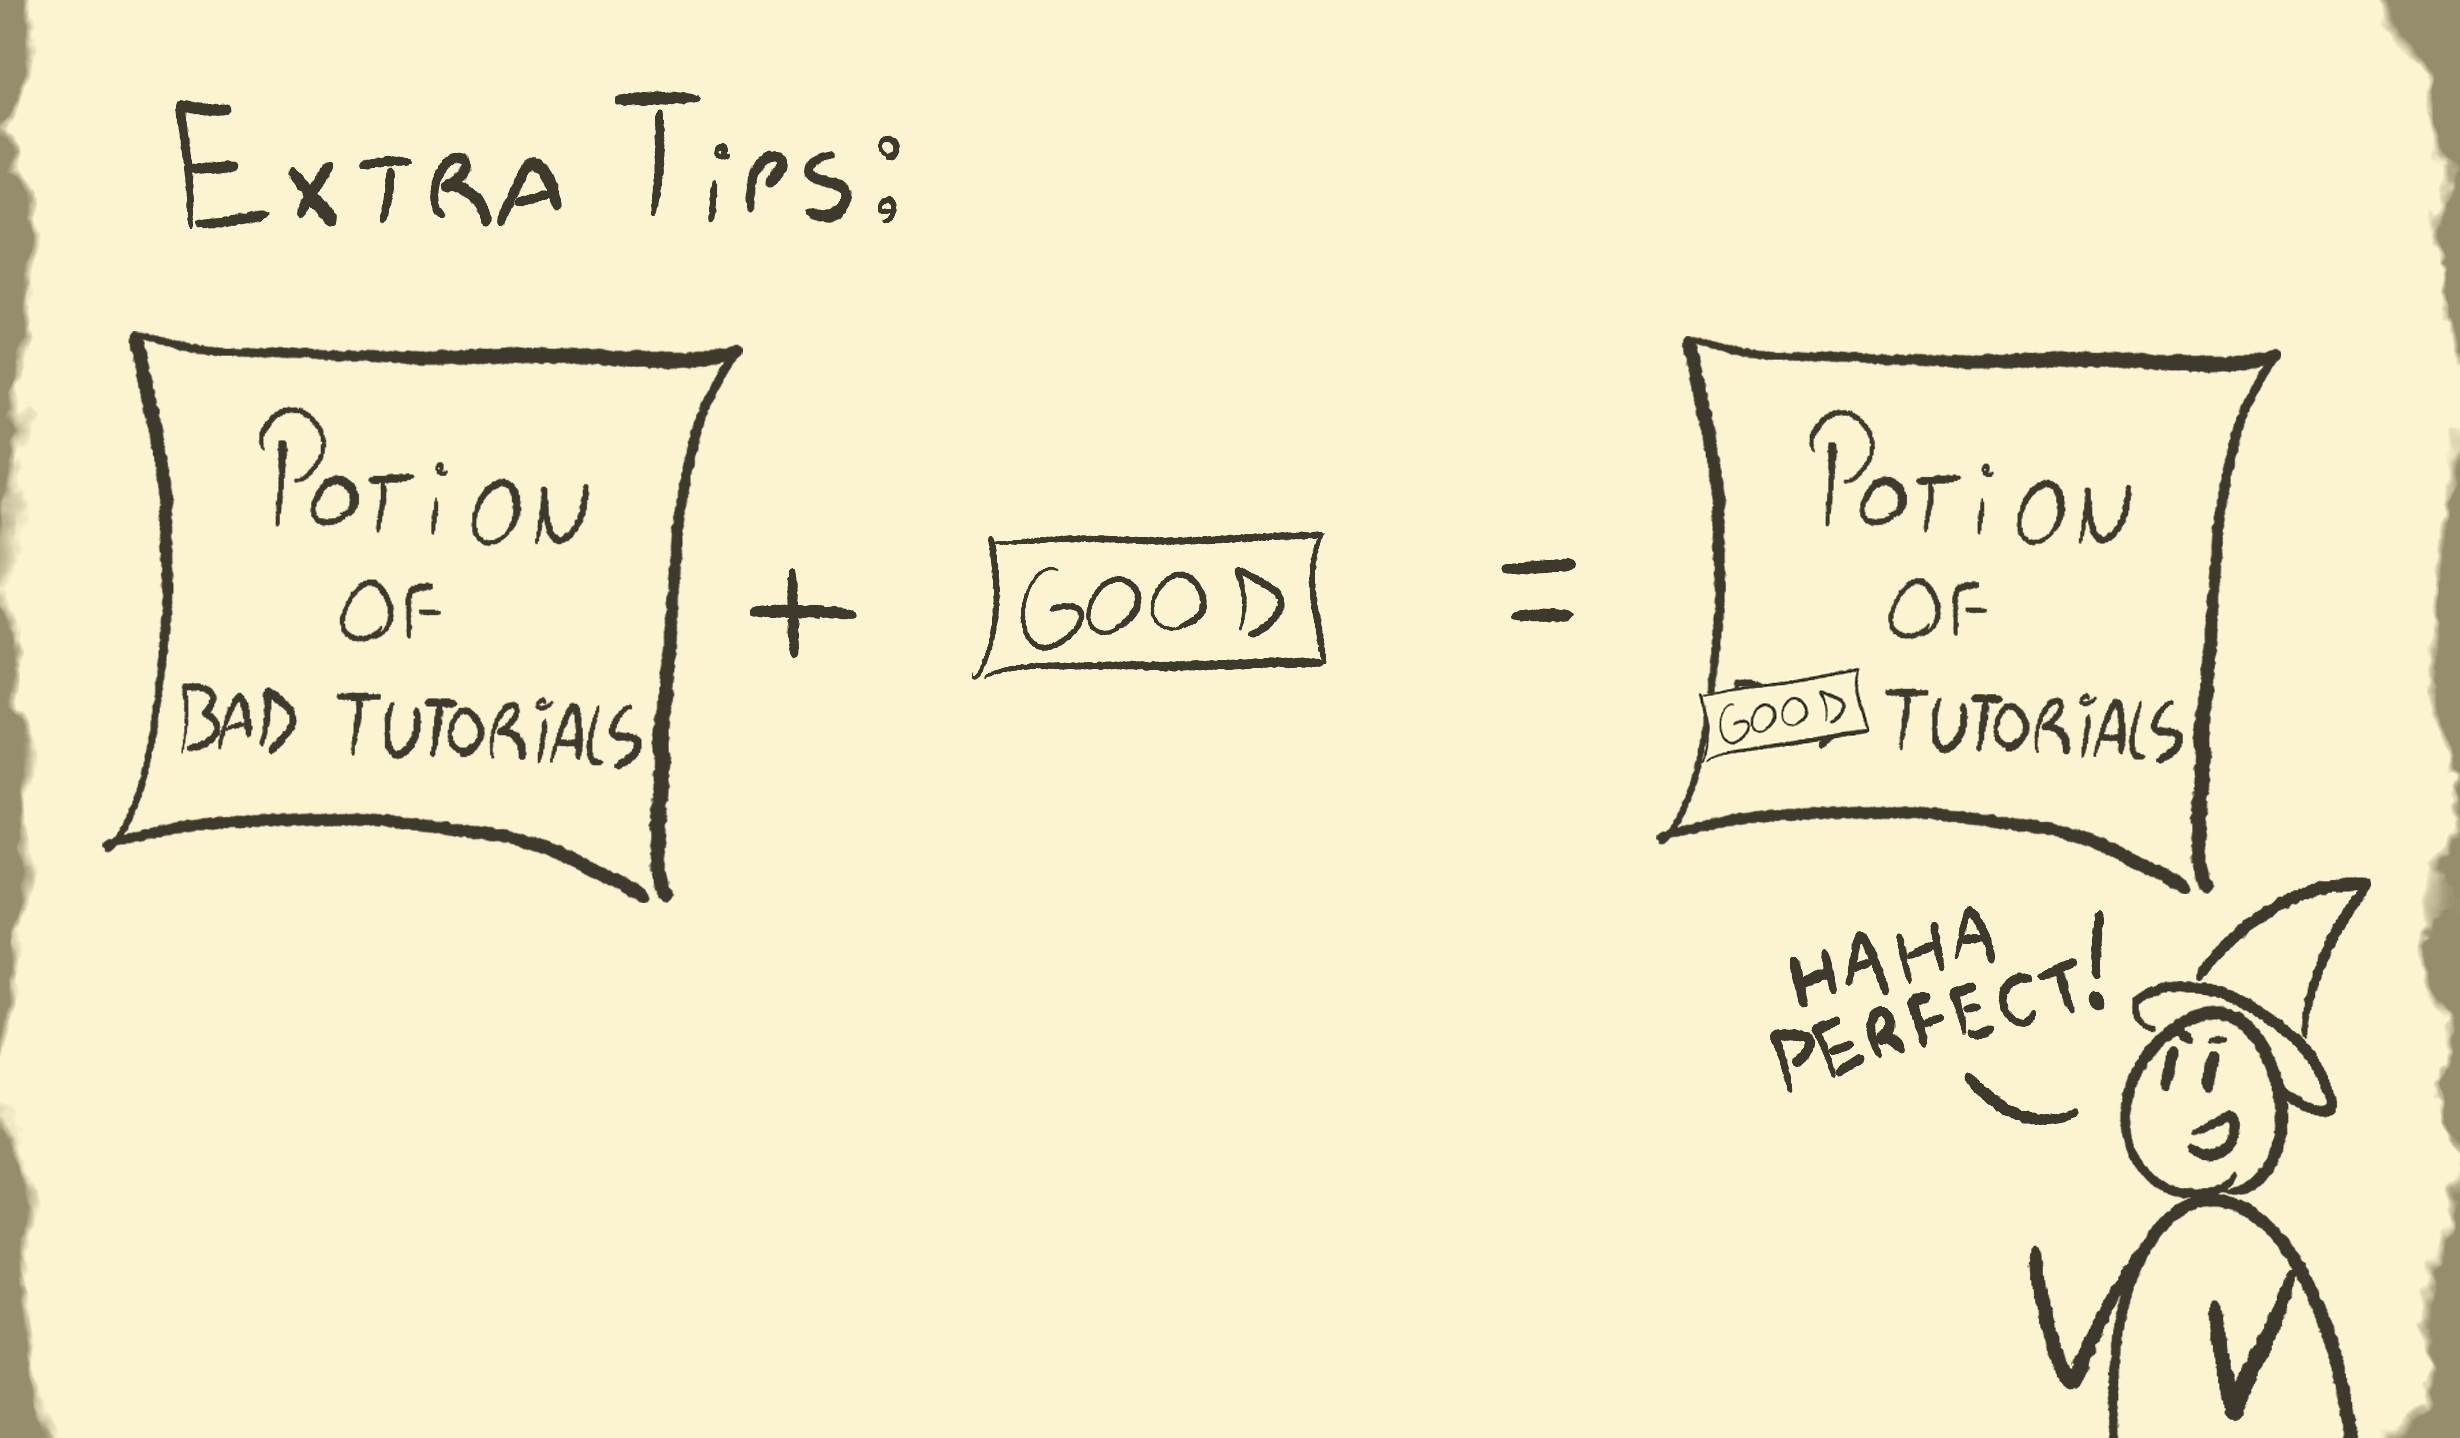 Extra Tips:
Potion
of
Bad Tutorials
+
Good
=
Potion
of
Good Tutorials
Haha
Perfect!